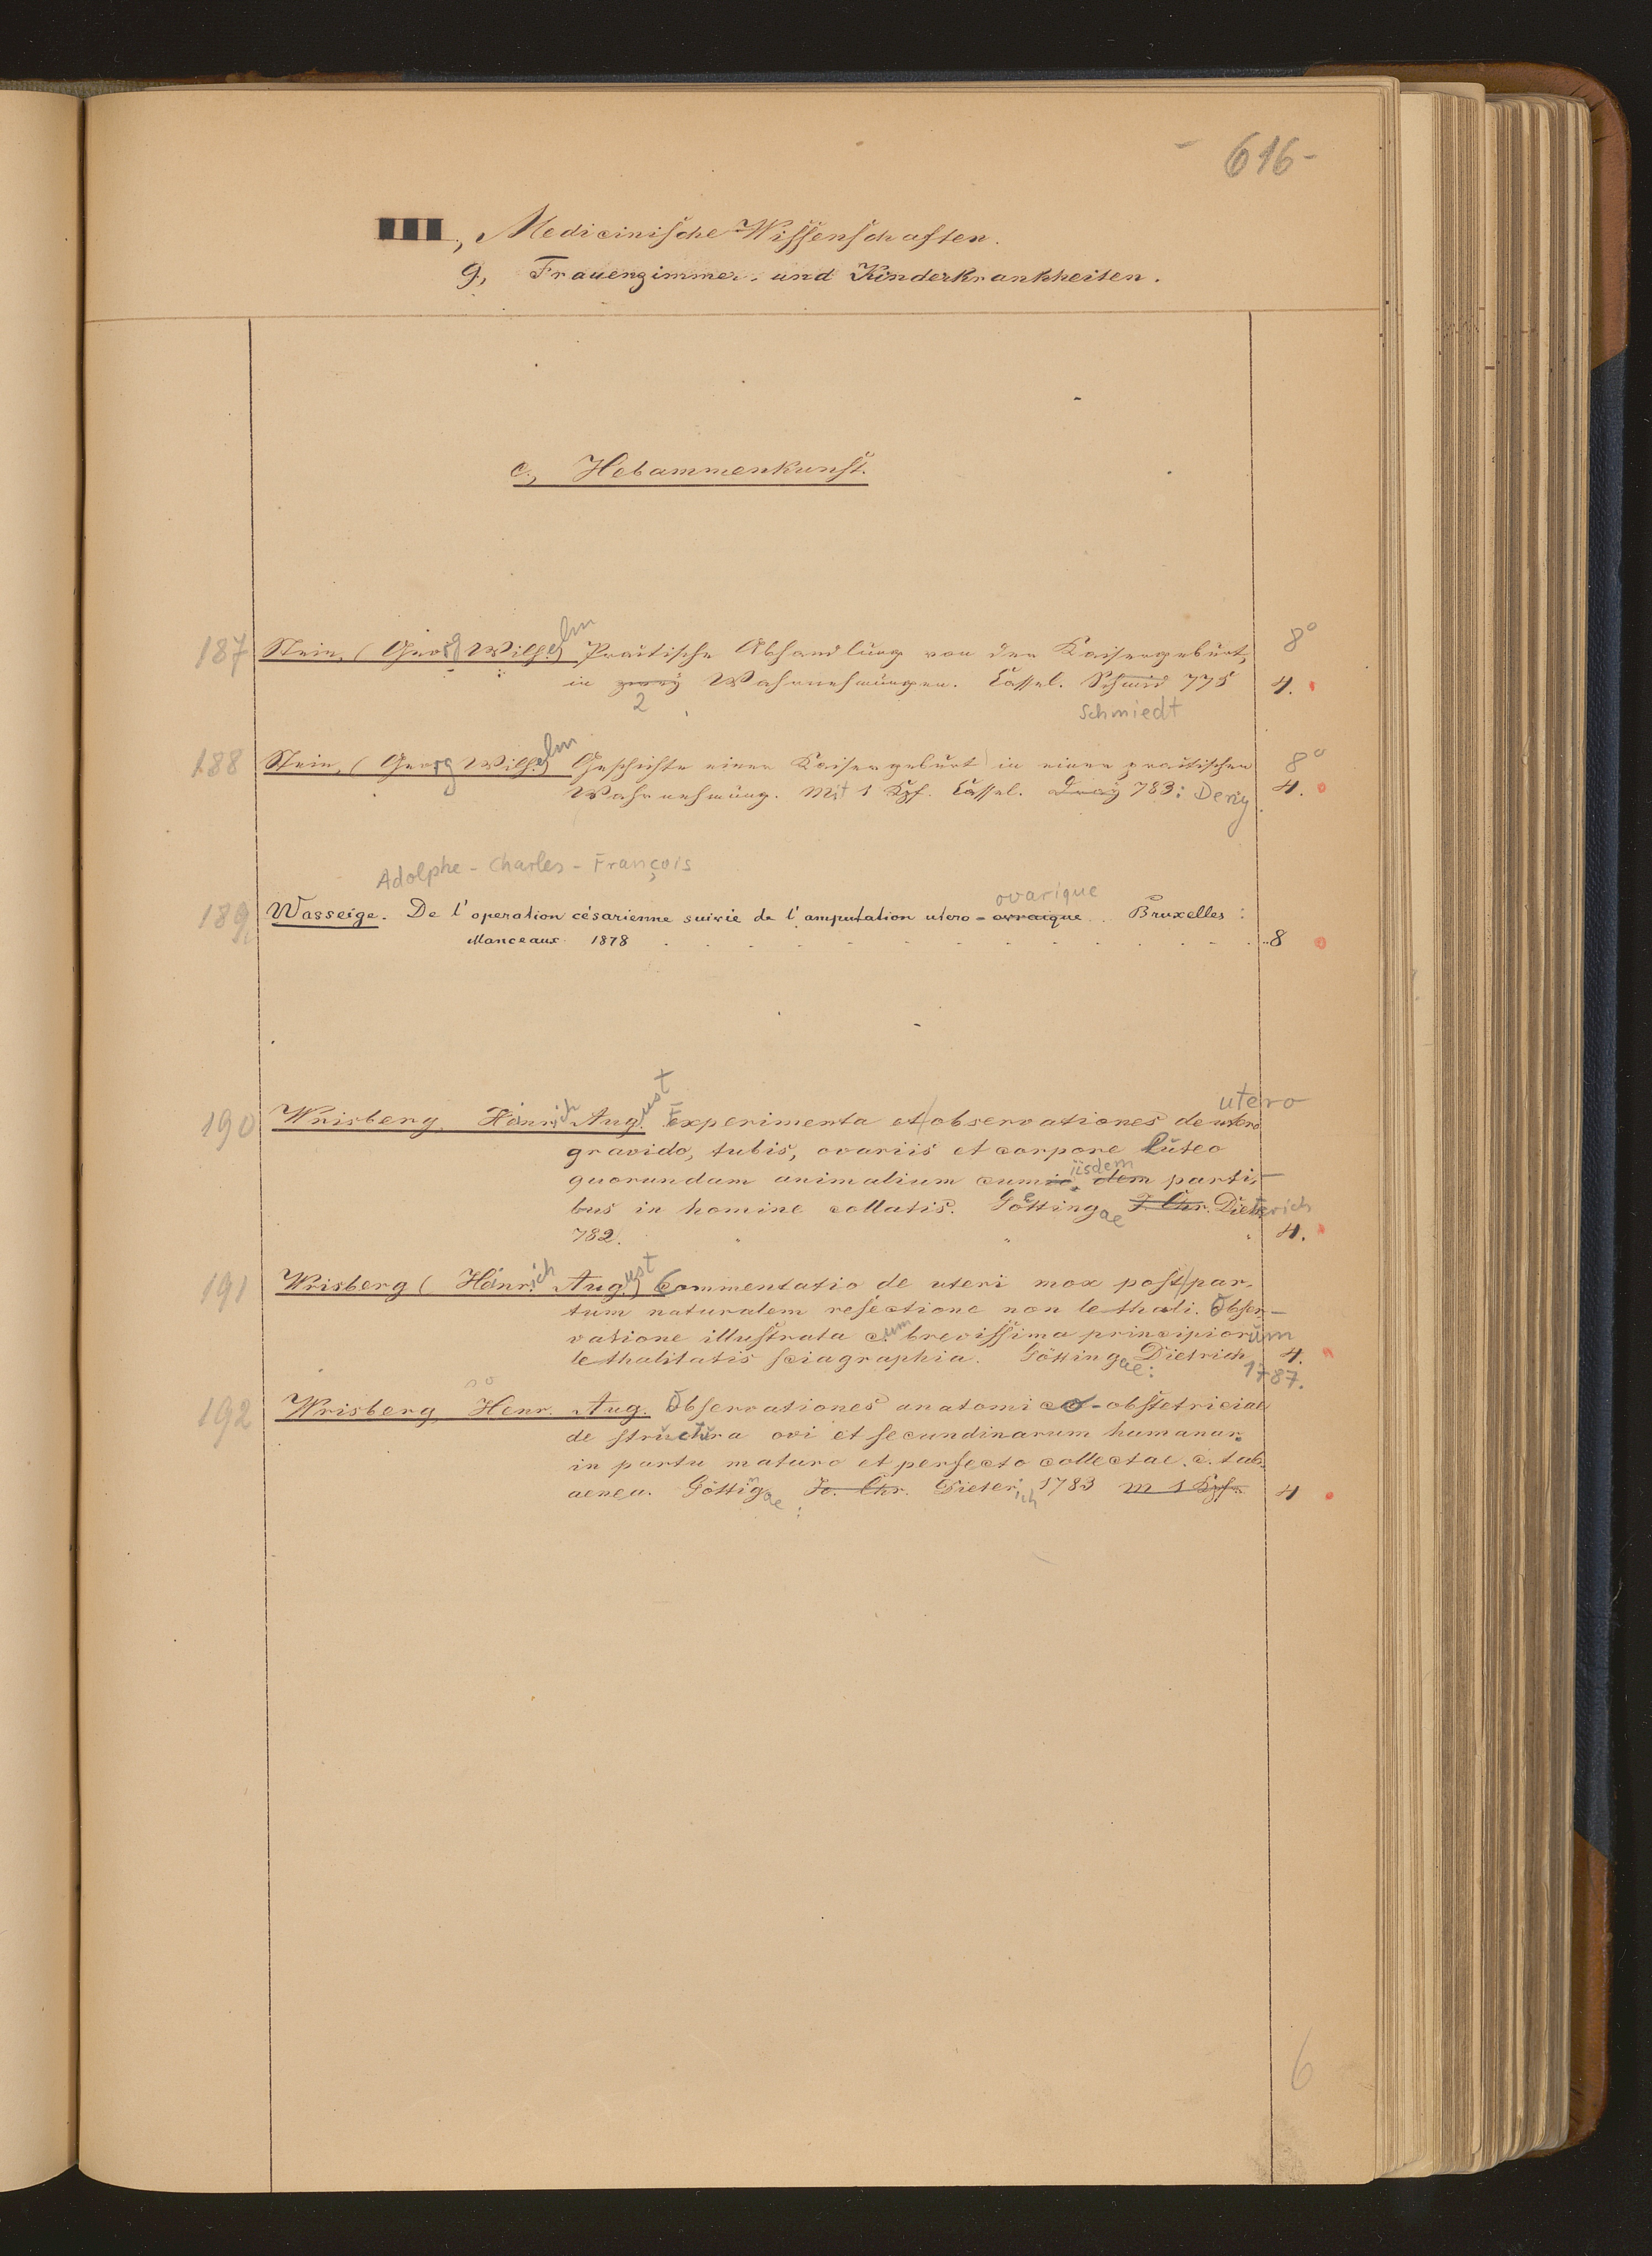 - 616 -
III., Medicinische Wissenschaften.
g, Frauenzimmer- und Kinderkrankheiten.
c., Hebammenkunst.
187 Stein, (Georg Wilhelm) Praktische Abhandlung von der Kaisergeburt, 8°
in zwey Wahrnehmungen. Cassel. Schmid 775 4.
2 Schmiedt
188 Stein, (Georg Wilhelm) Geschichte einer Kaisergeburt in einer praktischen 8°
Wahrnehmung. Mit 1 Kpf. Cassel. 783: 4.
Adolphe-Charles-François
ovarique
189 Wasseige. De l'operation césarienne suivie de l'amputation utero-ovraique. Bruxelles:
Manceaux 1878 8
utero
190 Wrisberg, Hänrich August Experimenta et observationes de utero
gravido, tubis, ovariis et corpore luteo
iisdem
quorundam animalium cum iis dem parti-
bus in homine collatis. Goettingae J. Chr. Dieterich
782. 4.
191 Wrisberg (Hänrich August) Commentatio de uteri mox post par-
tum naturalem resectione non lethali. Obser-
vatione illustrata cum brevissima principiorum
lethalitatis sciagraphia. Göttingae: Dietrich 4.
1787.
192 Wrisberg, Henr. Aug. Observationes anatomico-obstetriciae
de structura ovi et secundinarum humanar.
in partu maturo et perfecto collectae. c. tab.
aenea. Göttingae: Jo. Chr. Dieterich 1783 m 1 Kpf. 4
6